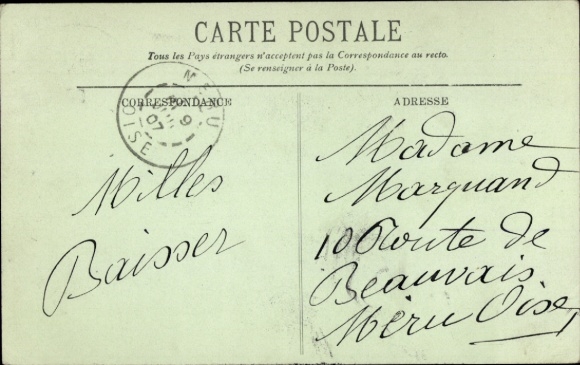 CARTE POSTALE
Tous les Pays étrangers n'acceptent pas la Correspondance au recto.
(Se renseigner à la Poste).
CORRESPONDANCE
MERU
OISE
9
07
Milles
Baisser
ADRESSE
Madame
Marquand
10 Route de
Beauvais
Méru Oise